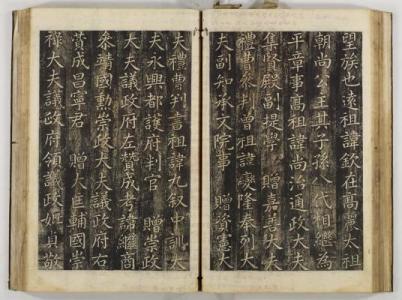 望族也遠祖諱欽在高麗太祖
朝尚公主其子孫八代相繼為
平章事高祖諱尚治通政大夫
集賢殿副提學 贈嘉善大夫
禮曹參判曾祖諱變隆奉列大
夫副知承文院事 贈資憲大
夫禮曹判書祖諱九叙中訓大
夫永興都護府判官 贈崇政
大夫議政府左贊成考諱繼商
參靖國勳崇政大夫議政府右
贊成昌寧君 贈大匡輔國崇
祿大夫議政府領議政妣貞敬